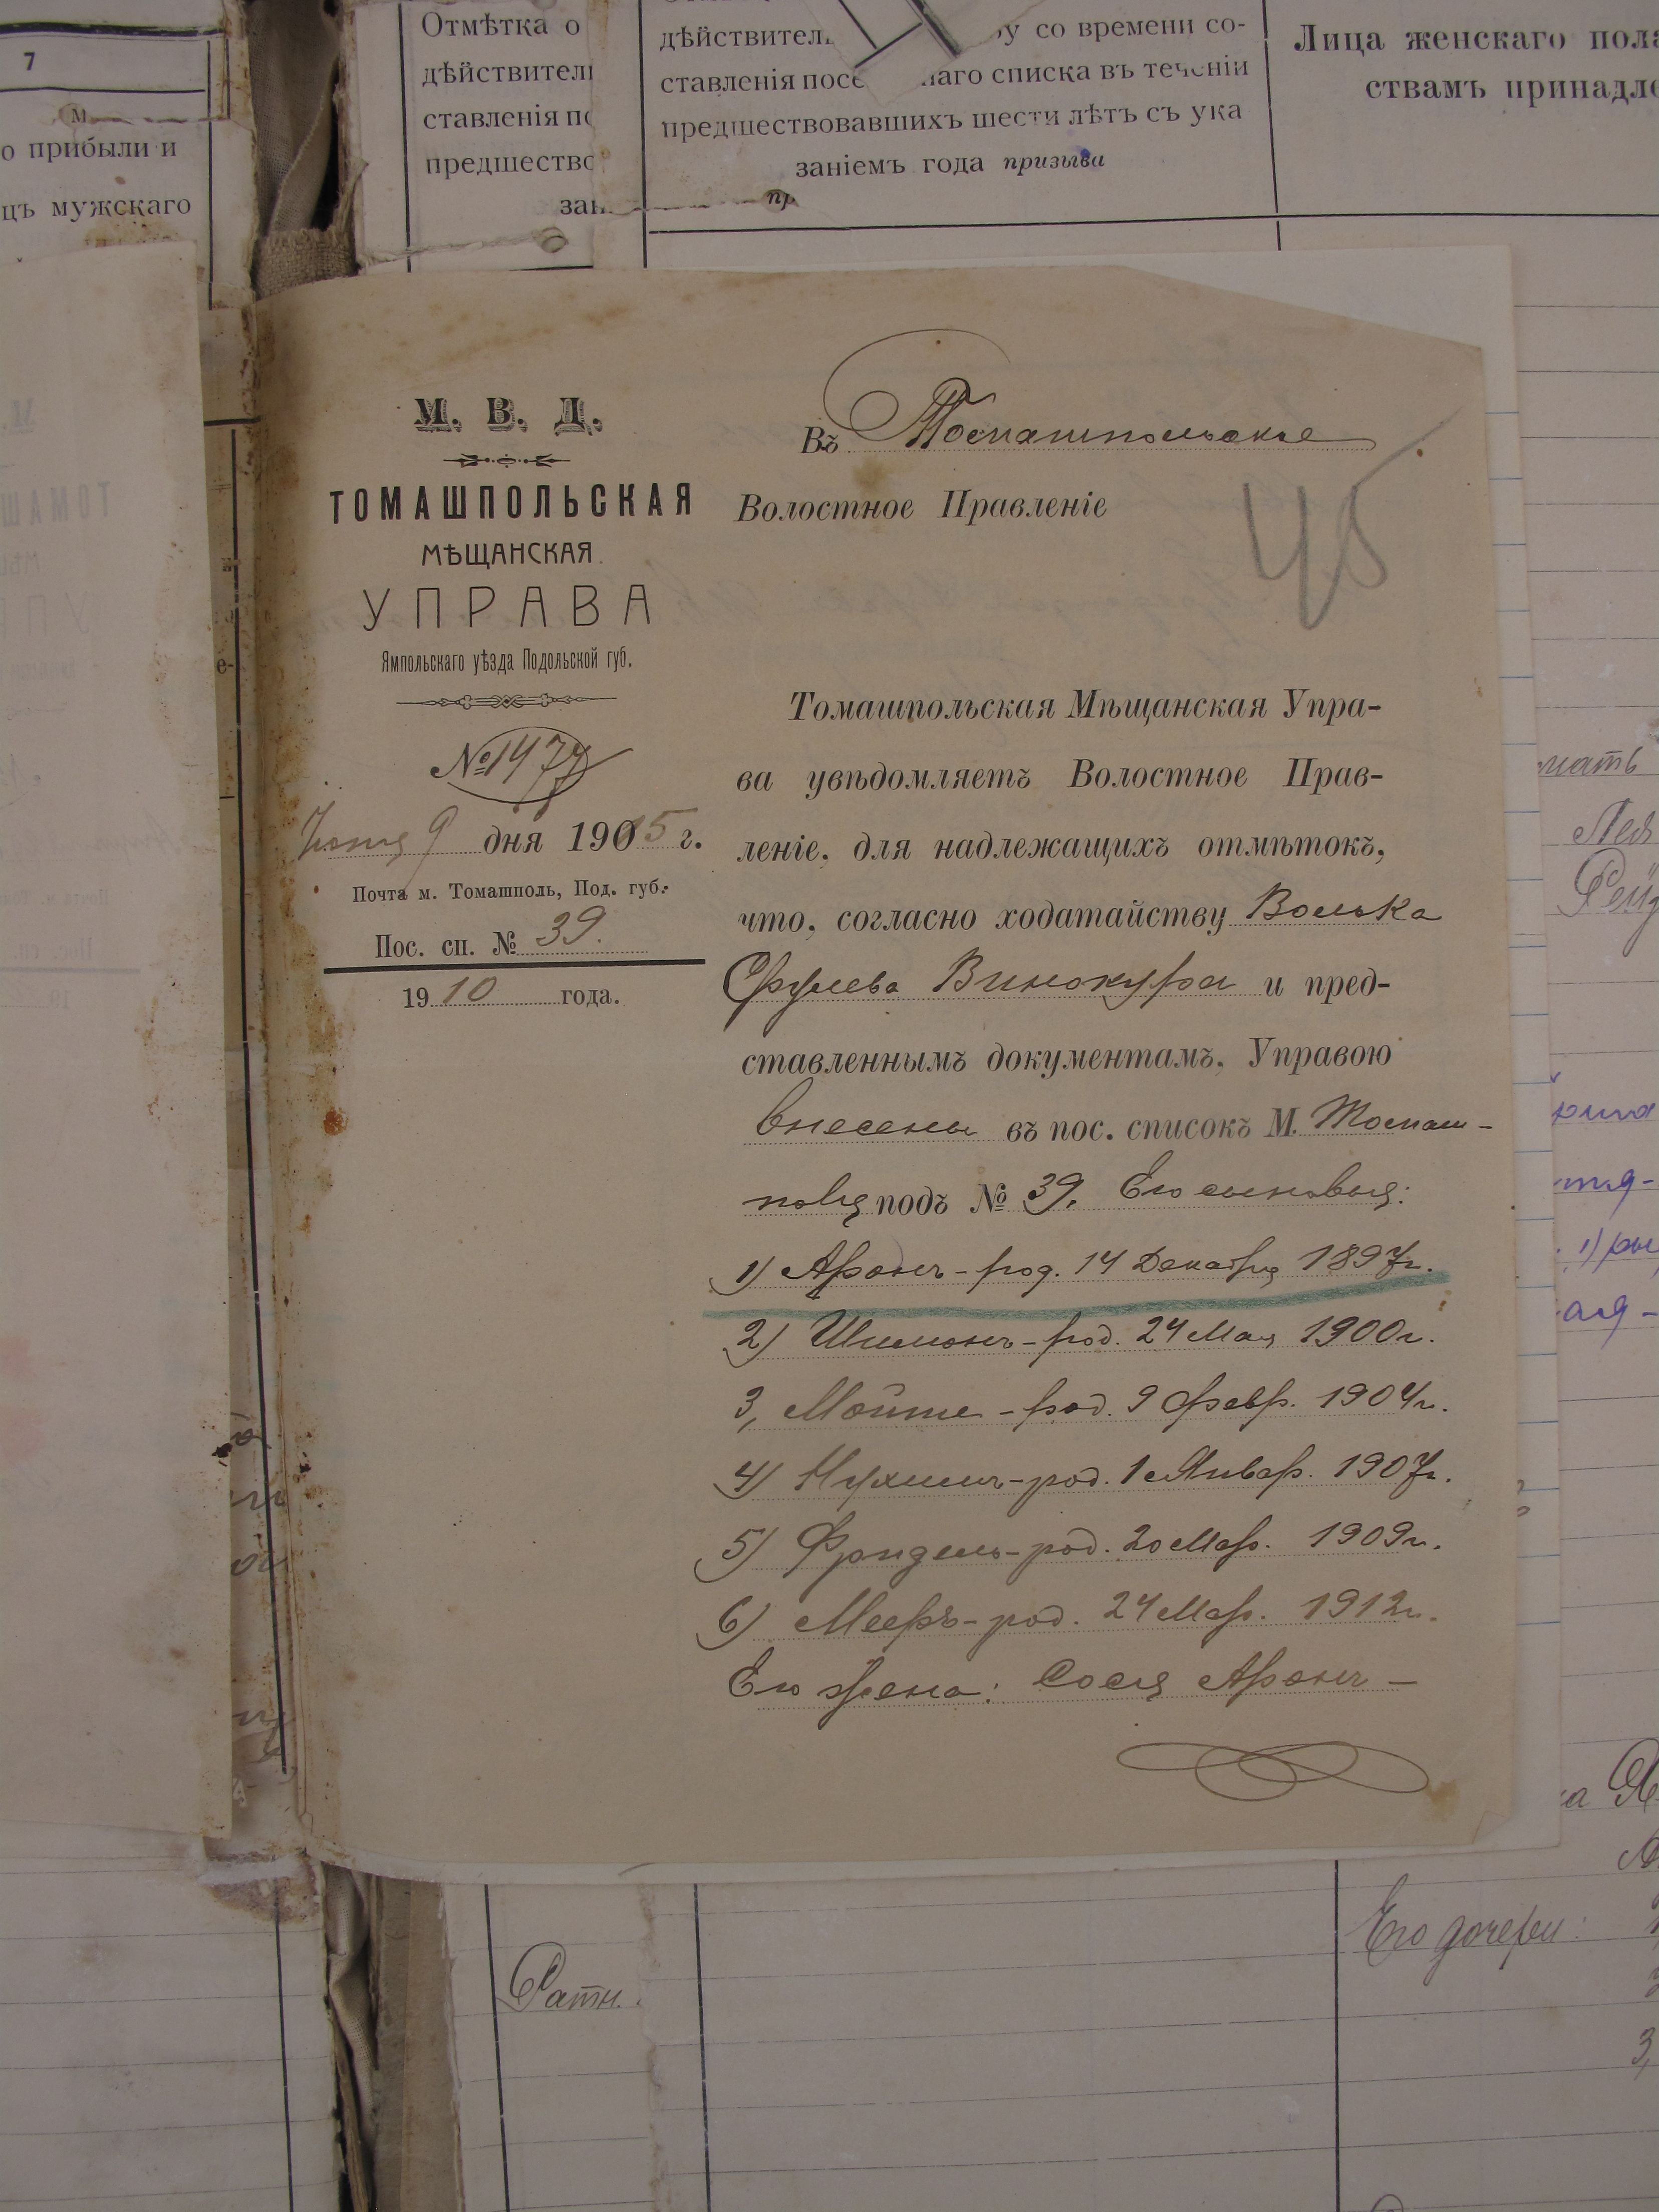 7
о прибыли и
цъ мужскаго
Отмѣтка о
дѣйствителі
ставленія по
предшество
дѣйствител
у со времени со-
ставленія посе наго списка въ теченіи
предшествовавшихъ шести лѣтъ съ ука
заніемъ года призыва
Лица женскаго пола
ствамъ принадле
М. В. Д.
ТОМАШПОЛЬСКАЯ
МѢЩАНСКАЯ
УПРАВА
Ямпольскаго уѣзда Подольской губ.
№ 1477
9 дня 1915 г.
Почта м. Томашполь, Под. губ.
Пос. сп. № 39.
1910 года.
Въ Томашпольское
Волостное Правленіе
45
Томашпольская Мѣщанская Упра-
ва увѣдомляетъ Волостное Прав-
леніе, для надлежащихъ отмѣтокъ,
что, согласно ходатайству Волька
Сруле­ва Винокура и пред-
ставленнымъ документамъ, Управою
внесены въ пос. списокъ М. Томаш-
поля подъ № 39. Его сыновья:
1) Аронъ - род. 14 Декабря 1897 г.
2) Шимонъ - род. 24 Мая 1900 г.
3, Мойше - род. 9 февр. 1904 г.
4) Нухимъ - род. 1 Январ. 1907 г.
5) Фридель - род. 20 Мар. 1909 г.
6) Мееръ - род. 24 Мар. 1912 г.
Его жена: Сося Арон -
Ратн.
Его дочери:
3,